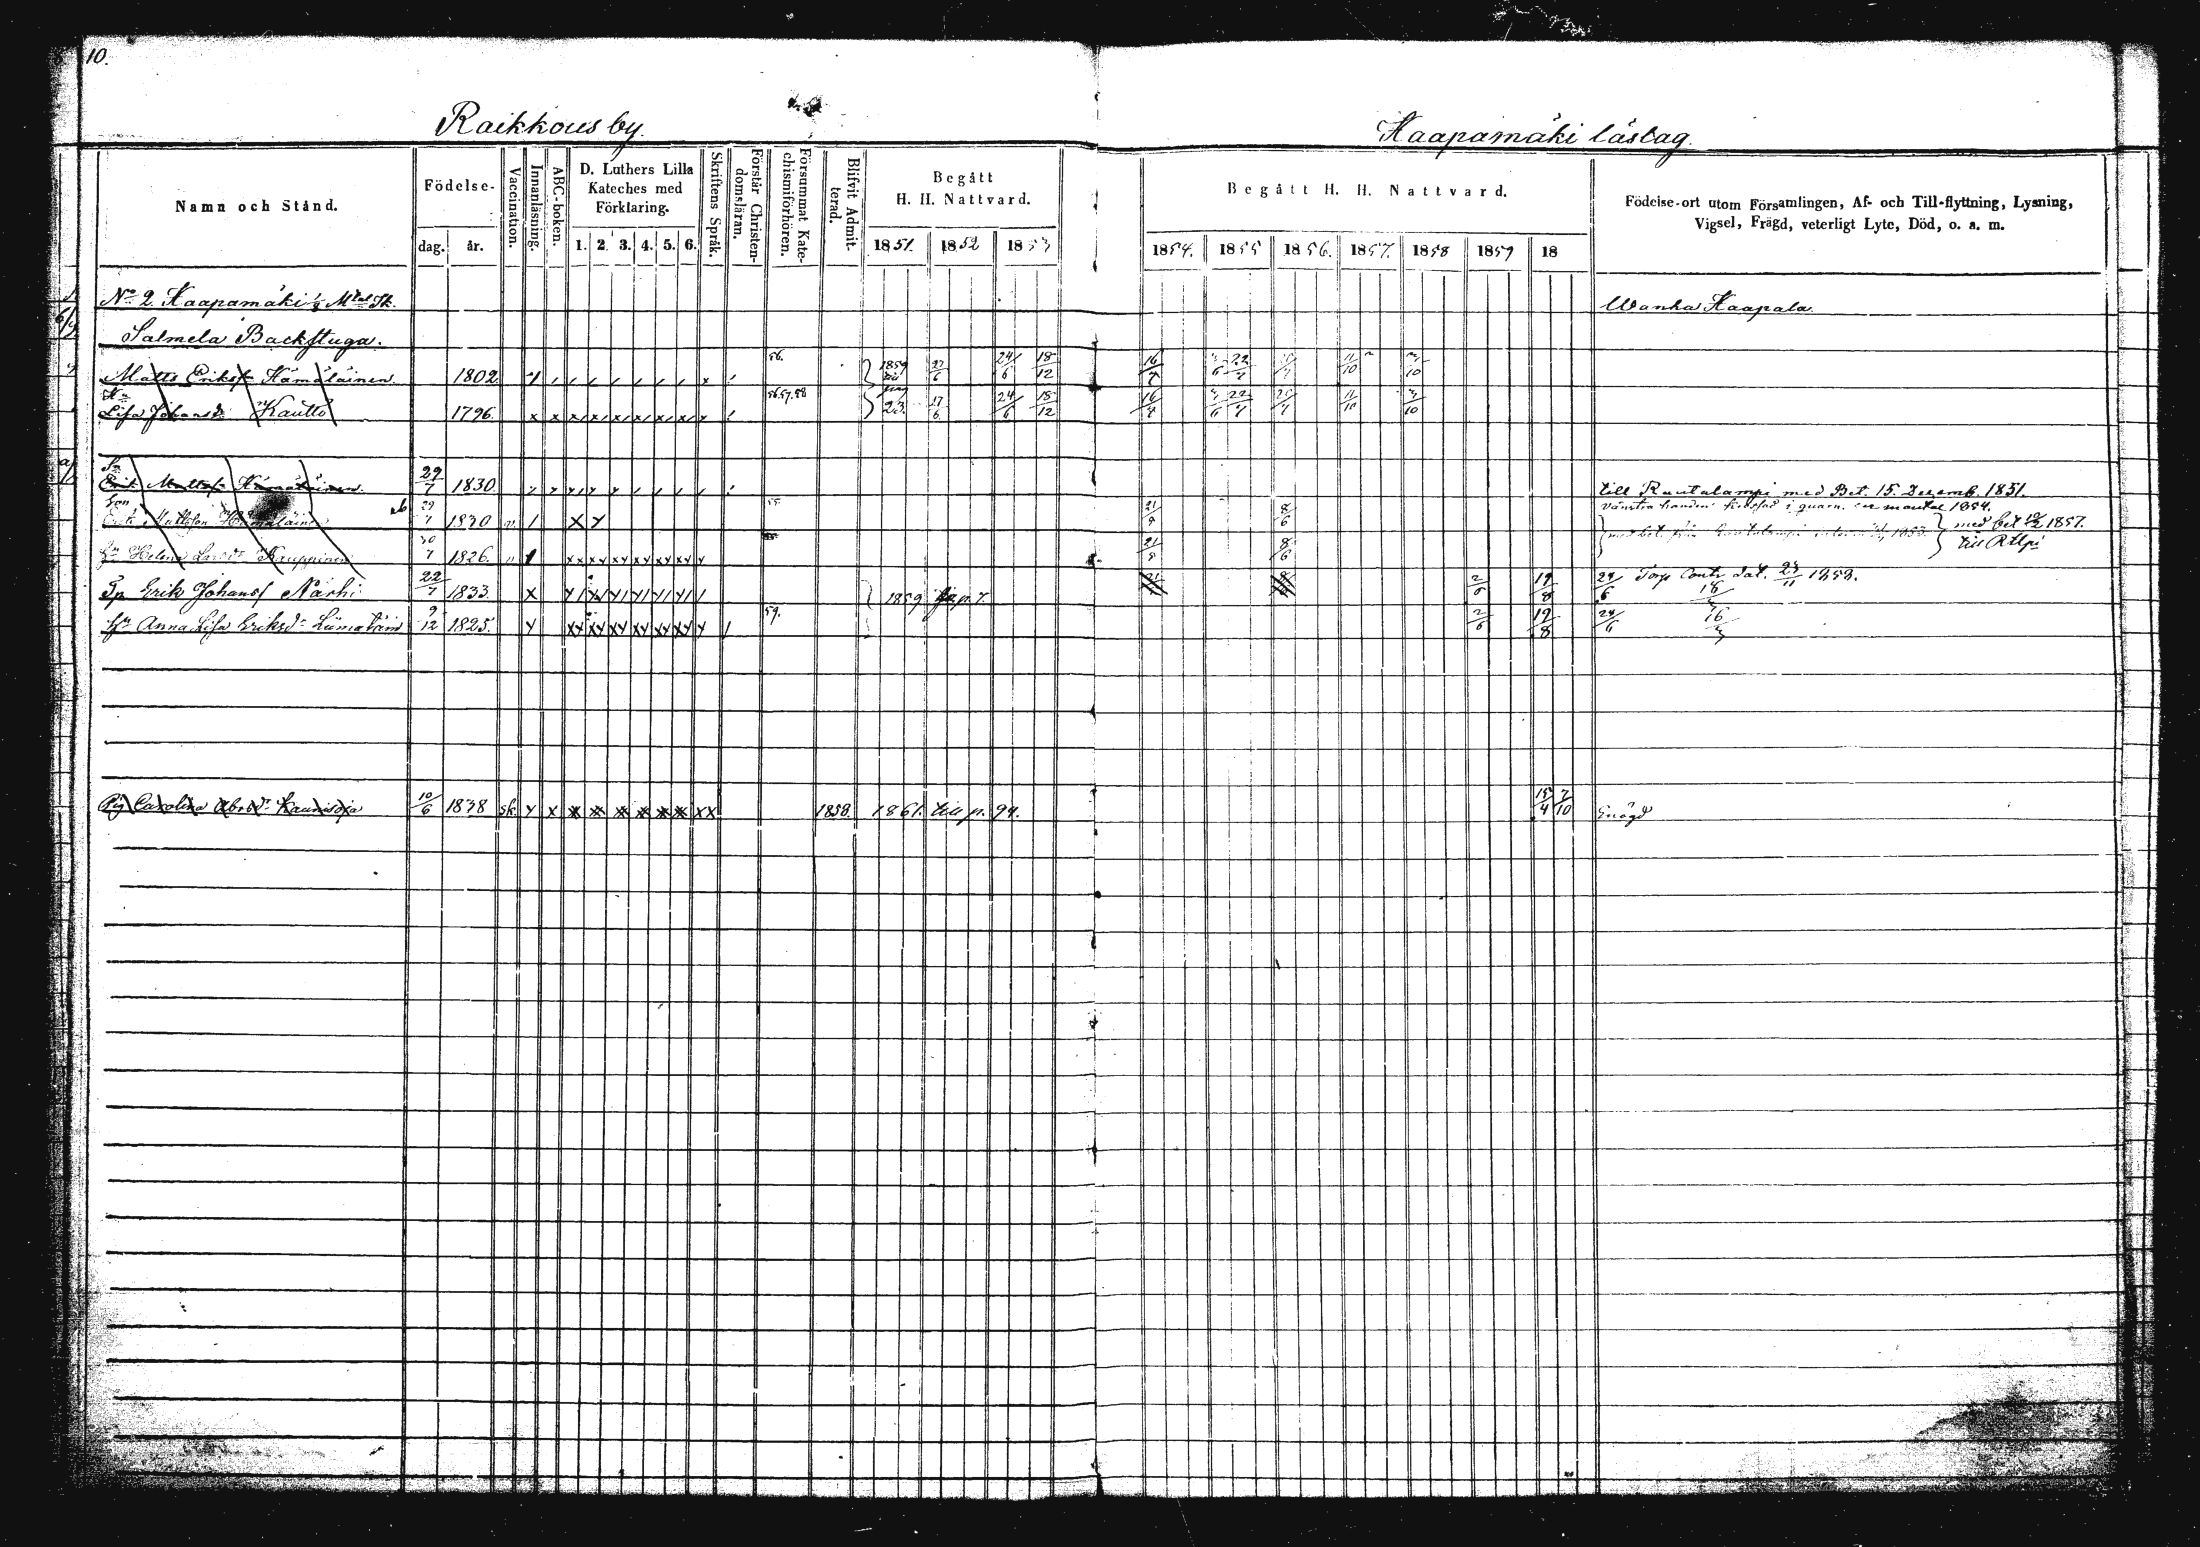 10.
Raikkous by.
Haapamäki läslag.
Namn och Stånd.
Födelse-
dag. år.
Vaccination.
Innanläsning.
ABC-boken.
D. Luthers Lilla Kateches med Förklaring.
1. 2. 3. 4. 5. 6.
Skriftens Språk.
Förstår Christendomsläran.
Försummat Katechismiförhören.
Blifvit Admitterad.
Begått H. H. Nattvard.
1851. 1852 1853
Begått H. H. Nattvard.
1854. 1855 1856. 1857. 1858 1859 18
Födelse-ort utom Församlingen, Af- och Till-flyttning, Lysning,
Vigsel, Frägd, veterligt Lyte, Död, o. a. m.
No 2 Haapamäki Mtal Sk. Wanha Haapala
Salmela Backstuga.
Matts Eriks. Hämäläinen. 1802 56. 1859 24/6 18/12 16/7 11/10
Lisa Johansd. Kautto 1796. 56.57.58 23. 17/6 24/6 18/12 16/7 11/10
Sn Erik Matts. Hämäläinen. 29/7 1830 till Rautalampi med Bet. 15. Decemb. 1851.
Son Erik Mattson Hämäläinen 29/7 1830 v. 55 21/9 8/6 vänstra handen 1854.
Hu Helena Larsd. Kauppinen 30/7 1826. 21/9 8/6 med bet. från Rautalampi 1853. med bet 1857. till Rtlpi
Tp Erik Johans. Närhi 22/7 1833. 1859 fr. p. 7. 21 8 2/6 19/8 24/6 Torp Contr dat. 23/11 1858. 16
Hu Anna Lisa Eriksd. Liimatain 9/12 1825. 59. 2/6 19/8 24/6 16
Pig Carolina Abrsdr. Kaunisoja 10/6 1838 sk. 1858. 1861. till p. 94. 15/4 7/10 Enögd